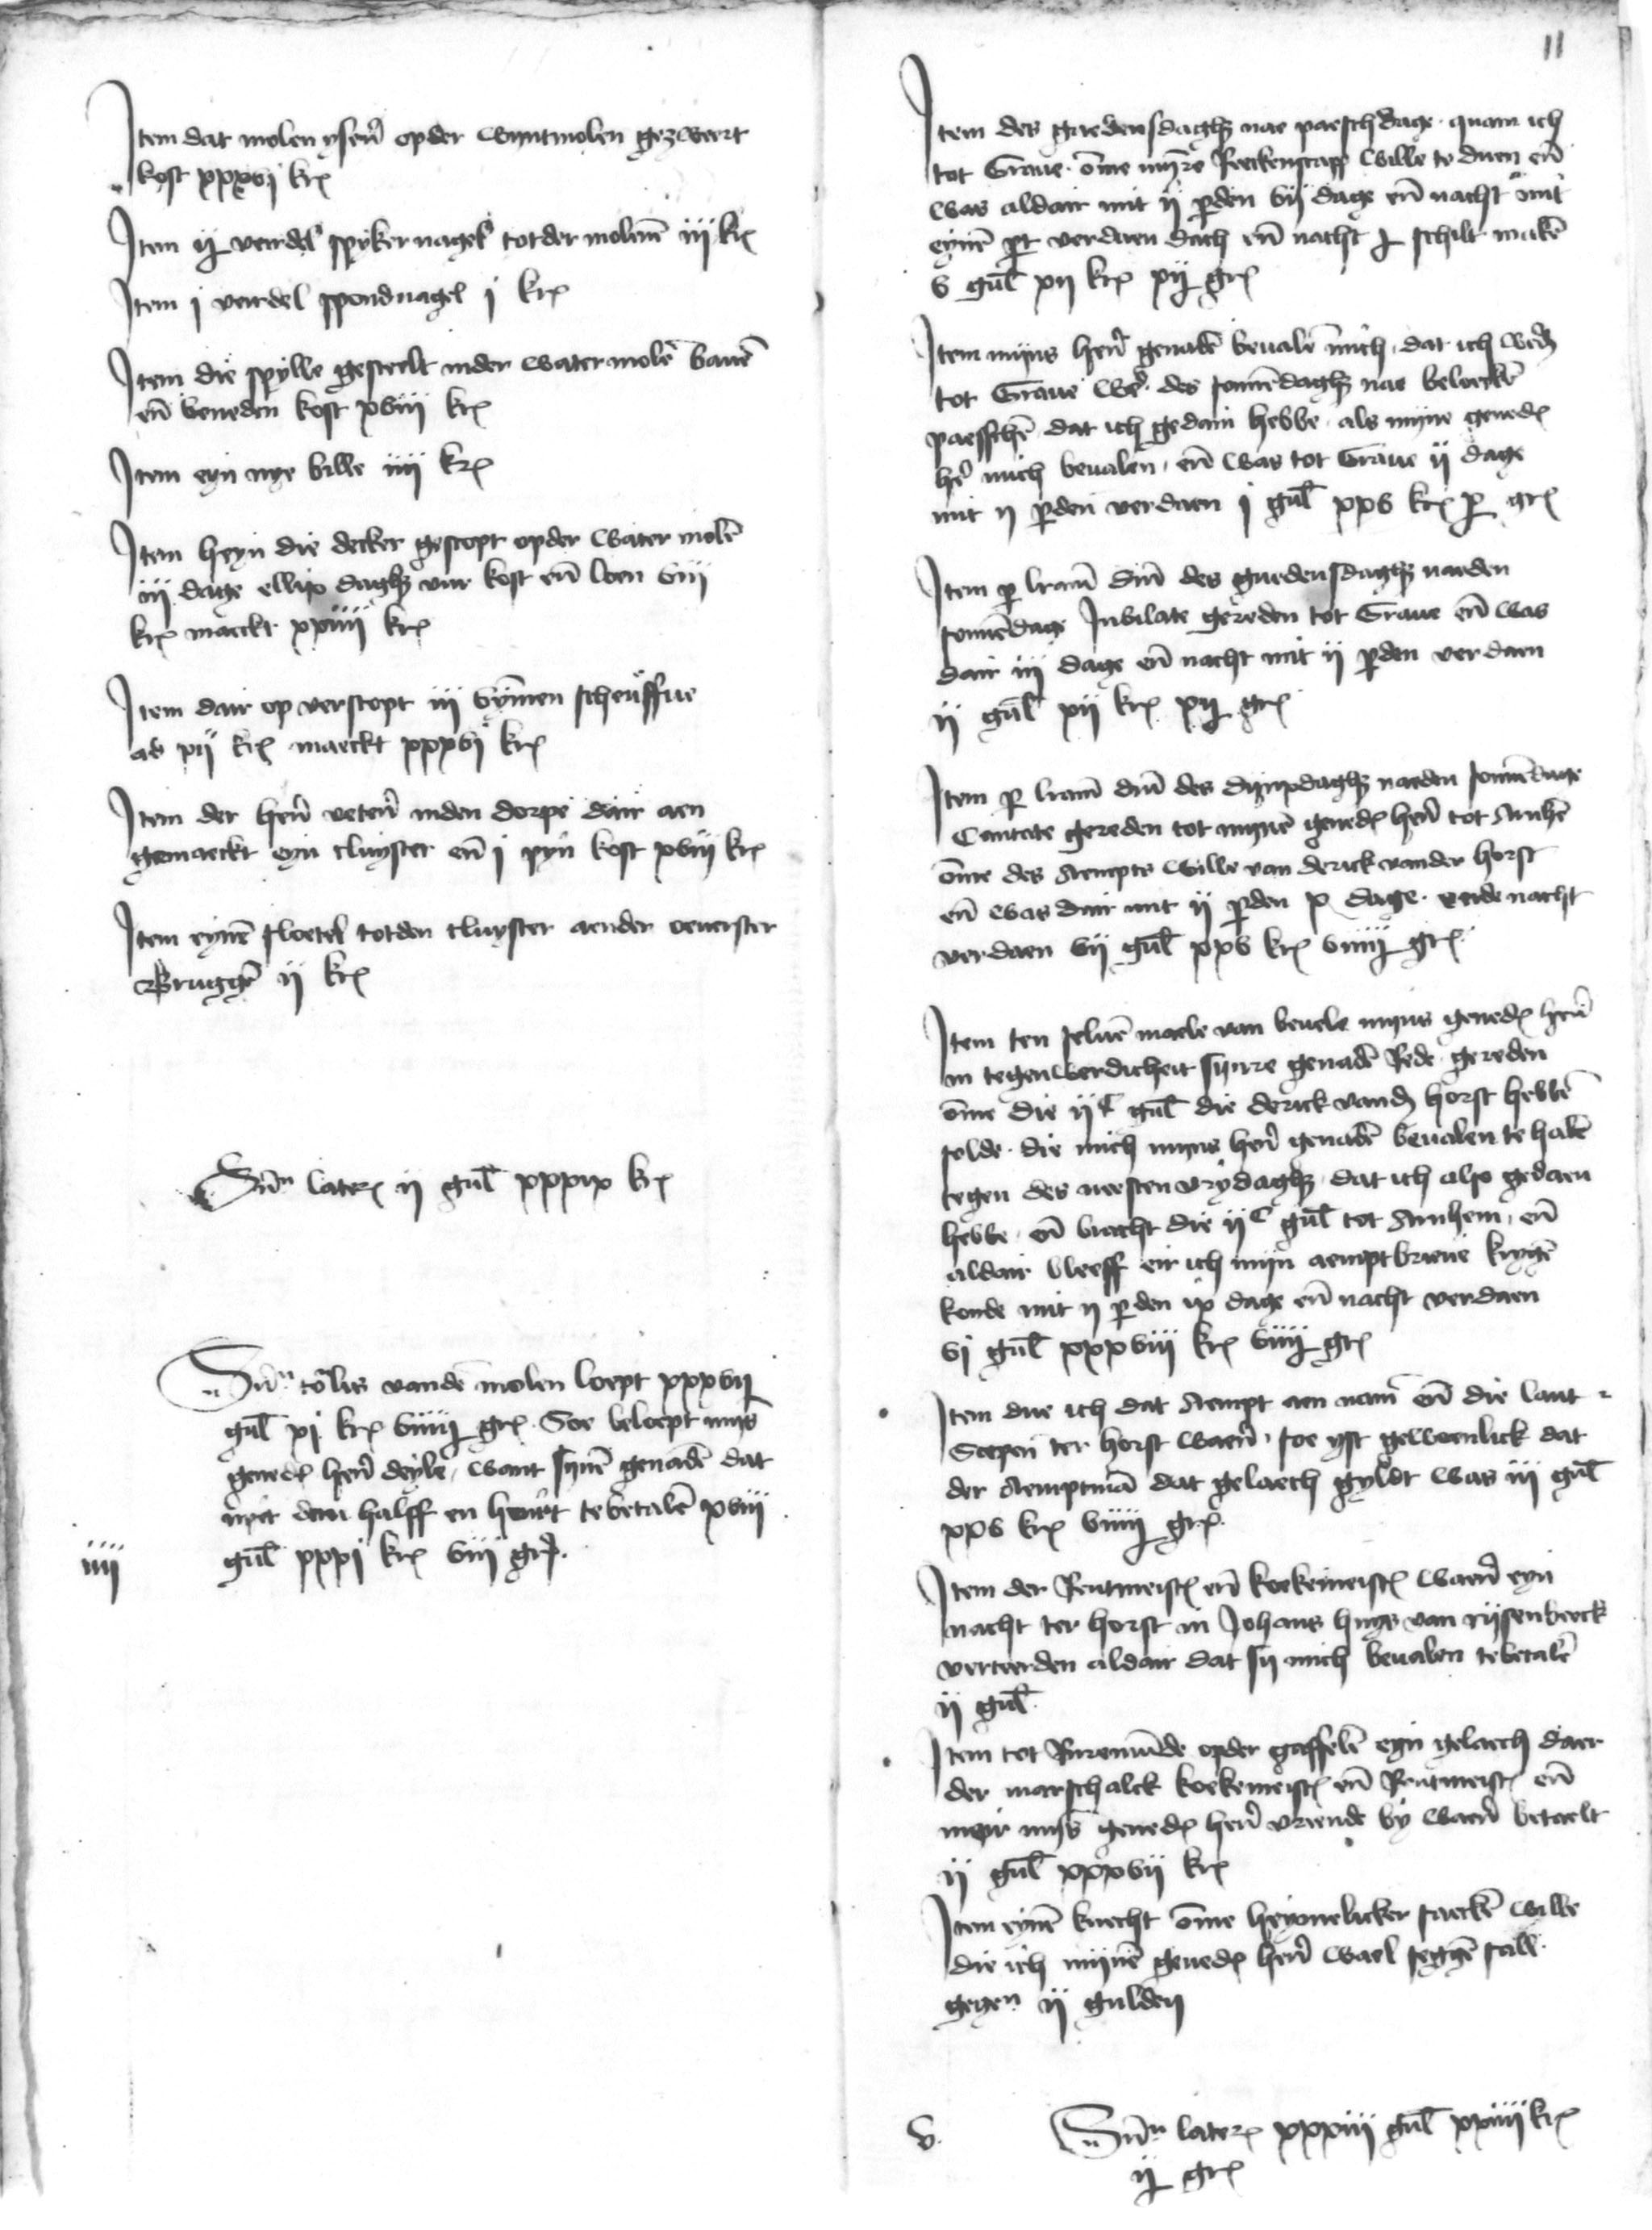 Item dat molen yseñ opder wyntmolen gezweert
kost xxxvi kr
Item ij veirdel spyker nagel totder molenn iij kr
Item i veirdel spondnagel i kr
Item die spylle gesteelt inder water mole bauē
eñ beneden kost xviii kr
Item eyn nye bille iiij kr
Item heyn die decker gestopt opder water molē
iij dage ellix daghs vur kost eñ loen viij
kr maeckt xxiiii kr
Item dair op verstopt iij vymmen scheuffue
ad xij kr maeckt xxxvi kr
Item der heñ veteñ inden dorpe dair aen
gemaeckt eyn cluyster eñ i pyn kost xviij kr
Item eynē sloetel totden cluyster aender oeuerster
Bruggē ij kr
Sūm later ij gul xxxix kr
Sūm tōlis vandē molen loept xxxvij
gul xi kr viiij gr. Soe beloept myns
gened heñ deyle, want synē genadē dat
nyet dan halff en heurt tebetalē xviii
iiii gul xxxi kr viii gr.
11
Item des guedensdaghs nae paeschdage quam ich
tot Graue omme mynre Reckenscap wille te duen eñ
was aldair mit ij perden vij dage eñ nacht mit
eynē pert verdaen dach eñ nacht schilt makē
v gul xij kr xij gr
Item myns heñ genadē beualē mich, dat ich weder
tot Graue des sonnēdaghs nae beloken
paesschē dat ich gedain hebbe als myne gened
her mich beualen, eñ was tot Graue ij dage
mit ij perden verdaen i gul xxv kr x gr
Item per lram dm des guedensdaghs naeden
sonnēdage Jubilate gereden tot Graue eñ was
dair iij dage eñ nacht mit ij perden verdaen
ij gul xij kr xij gr
Item per lram dm des dynxdaghs naeden sonnēdage
Cantate gereden tot mynē gened heñ tot Arnhē
omme des Aempts wille van derick vander horst
eñ was dair mit ij perden x dage ende nacht
verdaen vij gul xxv kr viiij gr.
Item ten seluē maele van beuele myns gened heñ
in tegenwerdicheit synre genadē Rede gereden
omme die ijc gul die derick vander horst hebbē
solde die mich myns heñ genadē beualen te halē
tegen des neesten vrydaghs, dat ich also gedaen
hebbe, eñ bracht die ijc gul tot Arnhem, eñ
aldair bleeff eir ich myn aemptbrieue krygē
konde mit ij perden ix dage eñ nacht verdaen
vi gul xxxviii kr viiij gr
Item due ich dat Aempt aen nam eñ die lant
Scepen ter horst waeñ, soe yst gewoenlick dat
der Aemptmā dat gelaech gyldt was iij gul
xxv kr viiij gr.
Item der Rentmeister eñ koekemeister waeñ eyn
nacht ter horst in Johans huys van rysenbeeck
verteerden aldair dat sy mich beualen tebetalē
ij gul.
Item tot Ruremunde opder gaffelē eyn gelaech daer
der marschalck koekemeister eñ Rentmeister eñ
meir myns gened heñ vriende by waeñ betaelt
ij gul xxxvij kr
Item eynē knecht omme heymelicker saeckē wille
die ich mynē gened heñ wael seggē sall
gegen ij gulden
v. Sūm later xxxiii gul xxiiii kr
ij gr